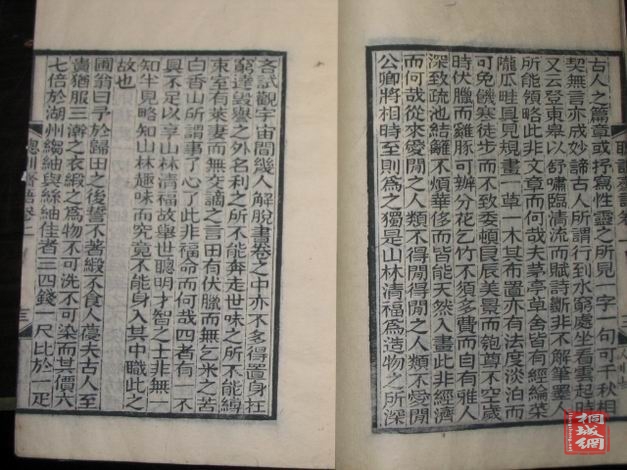 古人之篇章或抒寫性靈之所見一字一句可千秋相
契無言亦成妙諦古人所謂行到水窮處坐看雲起時
又云登東皋以舒嘯臨清流而賦詩斷非不解筆墨人
所能領略此非文章而何哉夫茅亭草舍皆有經綸菜
隴瓜畦具見規畫一草一木其布置亦有法度淡泊而
可免饑寒徒步而不致委頓良辰美景而匏尊不空歲
時伏臘而雞豚可辦分花乞竹不須多費而自有雅人
深致疏池結籬不煩華侈而皆能天然入畫此非經濟
而何哉從來愛閒之人類不得閒得閒之人類不愛閒
公卿將相時至則爲之獨是山林清福爲造物之所深
吝試觀宇宙間幾人解脫書卷之中亦不多得置身在
窮達毀譽之外名利之所不能奔走世味之所不能縛
束室有萊妻而無交謫之言田有伏臘而無乞米之苦
白香山所謂事了心了此非福命而何哉四者有一不
具不足以享山林清福故舉世聰明才智之士非無一
知半見略知山林趣味而究竟不能身入其中職此之
故也
圃翁曰予於歸田之後誓不著緞不食人葠夫古人至
貴猶服三澣之衣緞之爲物不可洗不可染而其價六
七倍於湖州縐紬與絲紬佳者三四錢一尺比於一疋
三
桐城網